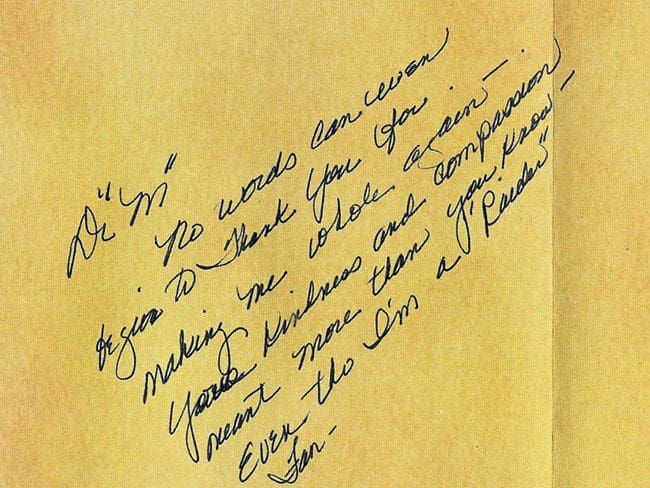 Dr "M"
No words can even
begin to Thank You for
making me whole again —
Your Kindness and compassion
meant more than you know —
Even tho I'm a "Raider"
Fan —